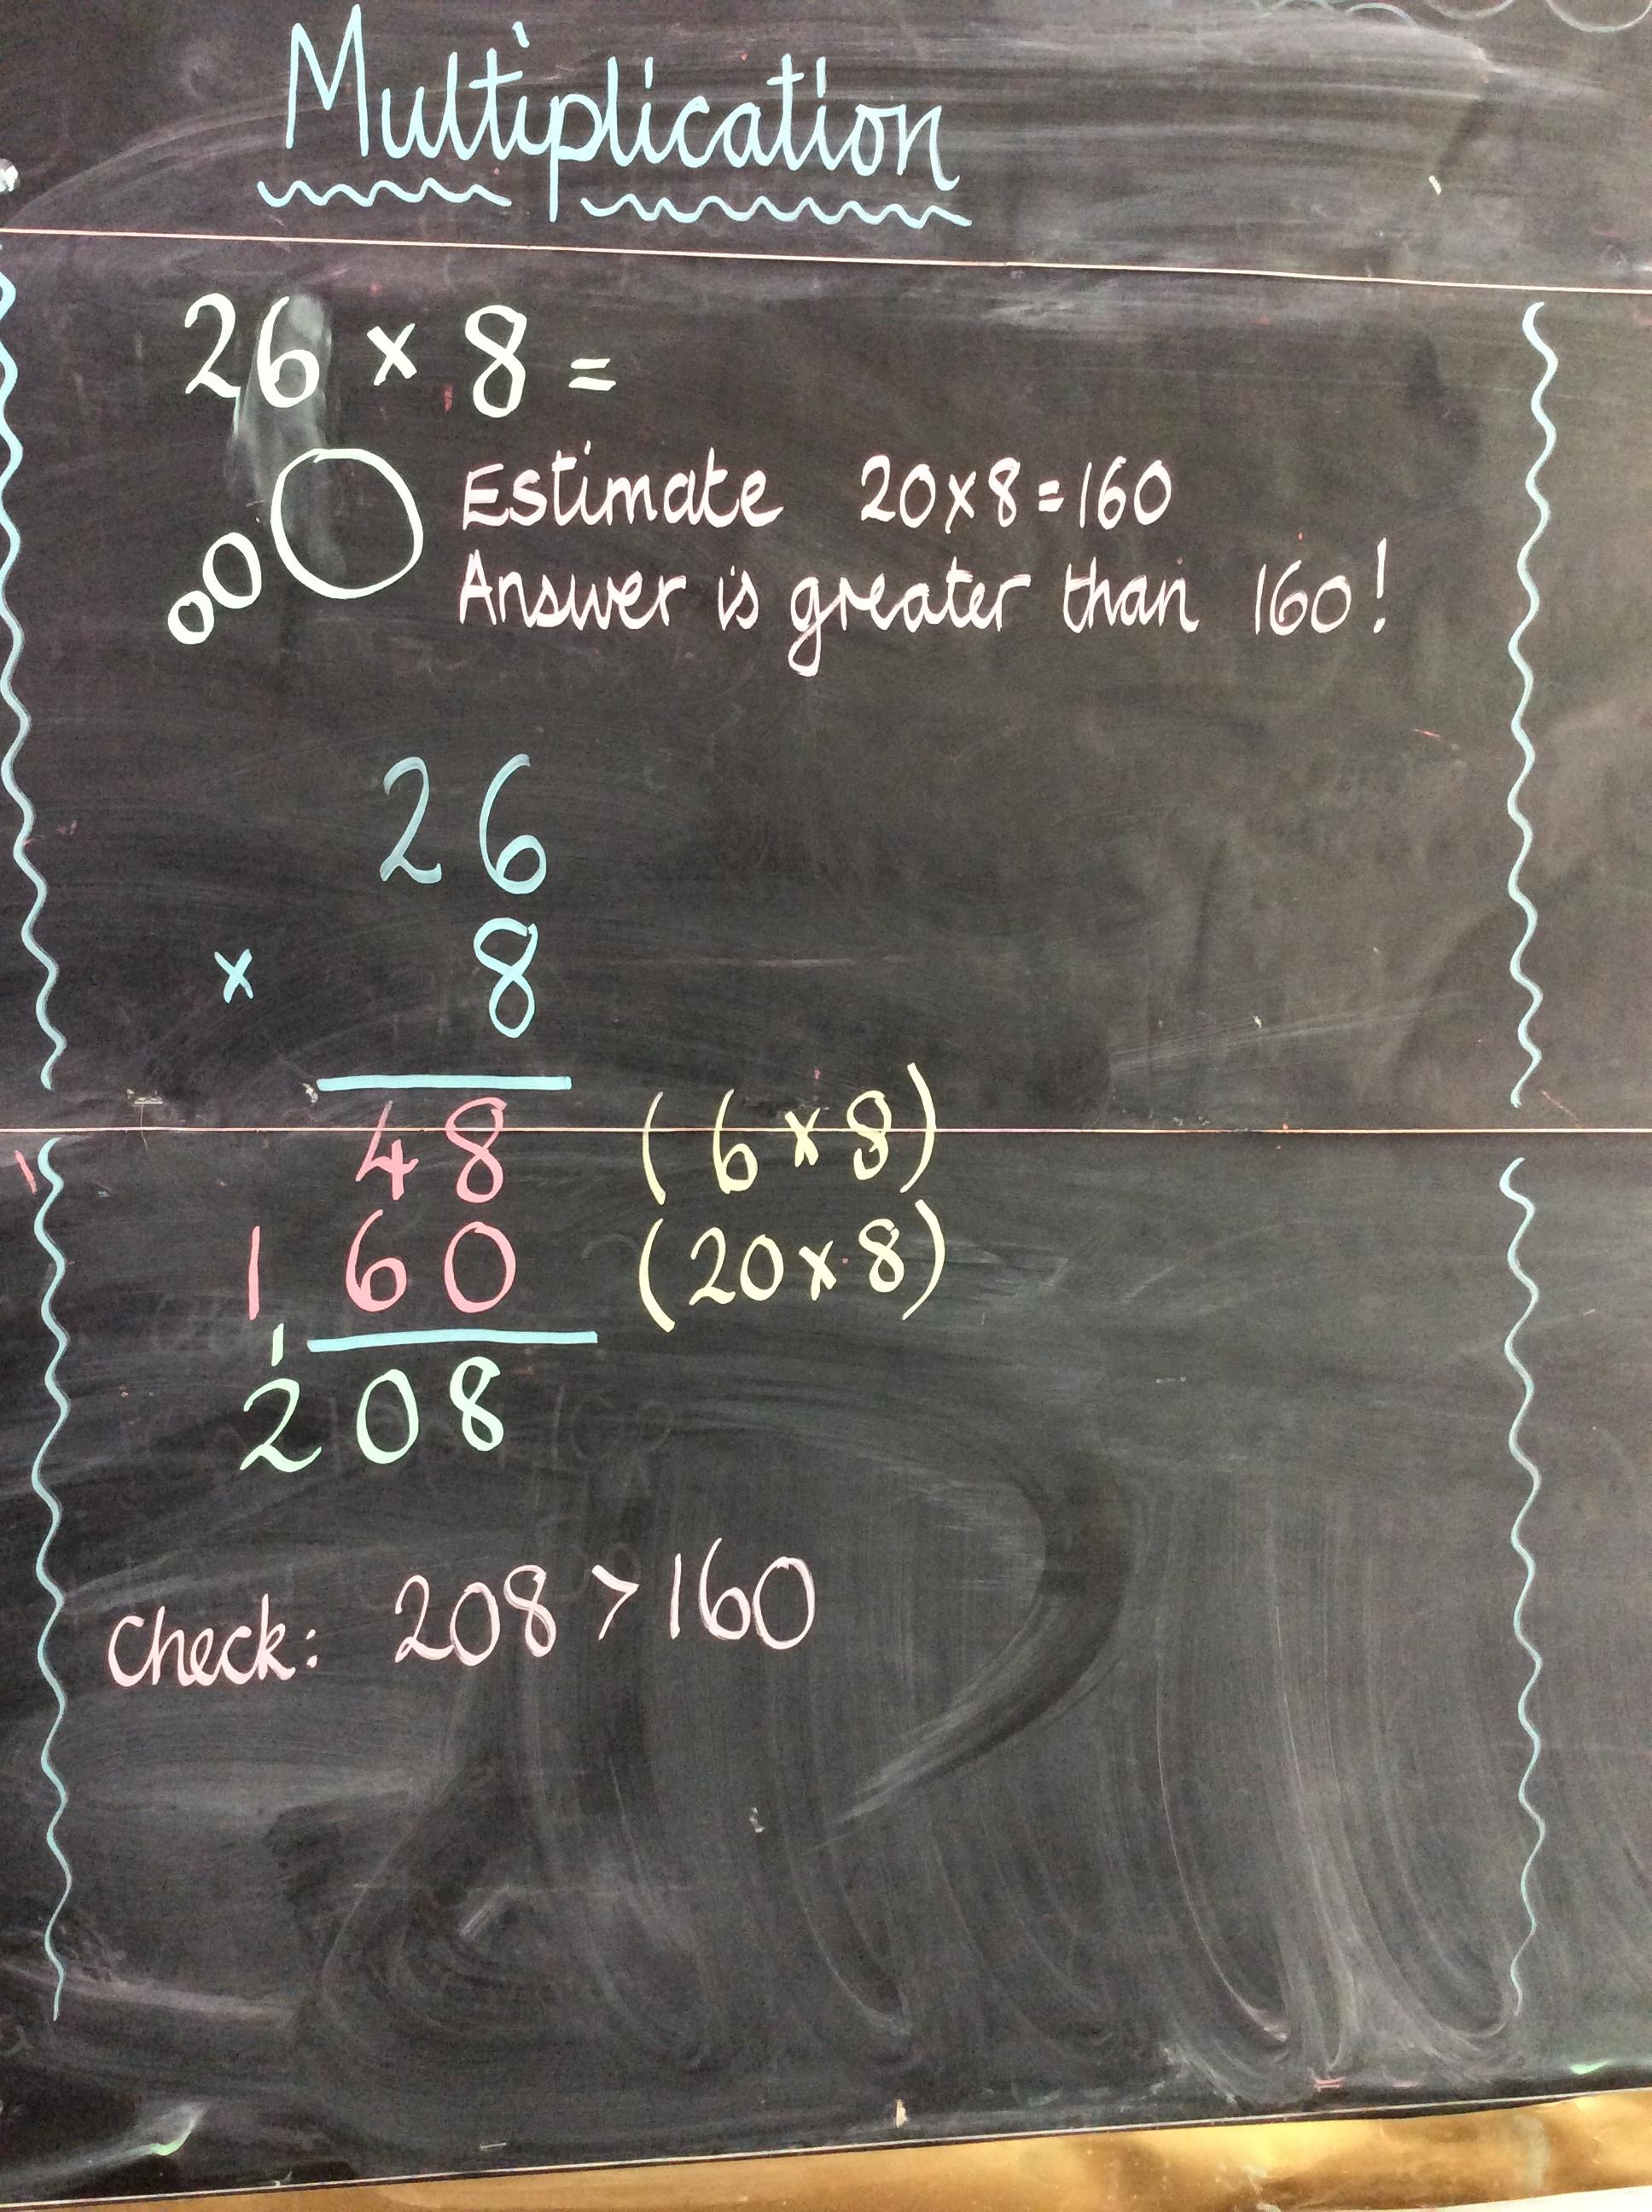 Multiplication
26 × 8 =
Estimate 20×8=160
Answer is greater than 160!
26
× 8
48 (6×8)
160 (20×8)
1
208
Check: 208 > 160